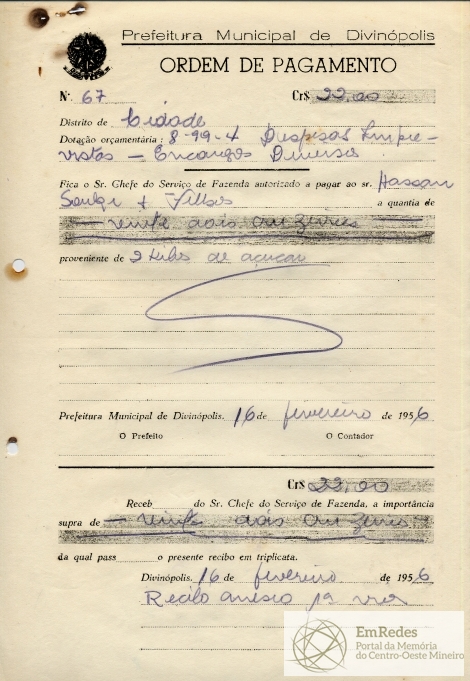 Prefeitura Municipal de Divinópolis
ORDEM DE PAGAMENTO
N.º 67 Cr$ 22,00
Distrito de Cidade
Dotação orçamentária: 8-99-4 Despesas Impre-
vistas — Encargos Diversos
Fica o Sr. Chefe do Serviço de Fazenda autorizado a pagar ao sr. Hassan
& Filhos a quantia de
— vinte dois cruzeiros
proveniente de 2 kilos de açucar
Prefeitura Municipal de Divinópolis, 16 de fevereiro de 1956
O Prefeito O Contador
Cr$ 22,00
Receb do Sr. Chefe do Serviço de Fazenda, a importância
supra de — vinte dois cruzeiros
da qual pass o presente recibo em triplicata.
Divinópolis, 16 de fevereiro de 1956
Recibo anexo 1ª via
EmRedes
Portal da Memória
do Centro-Oeste Mineiro